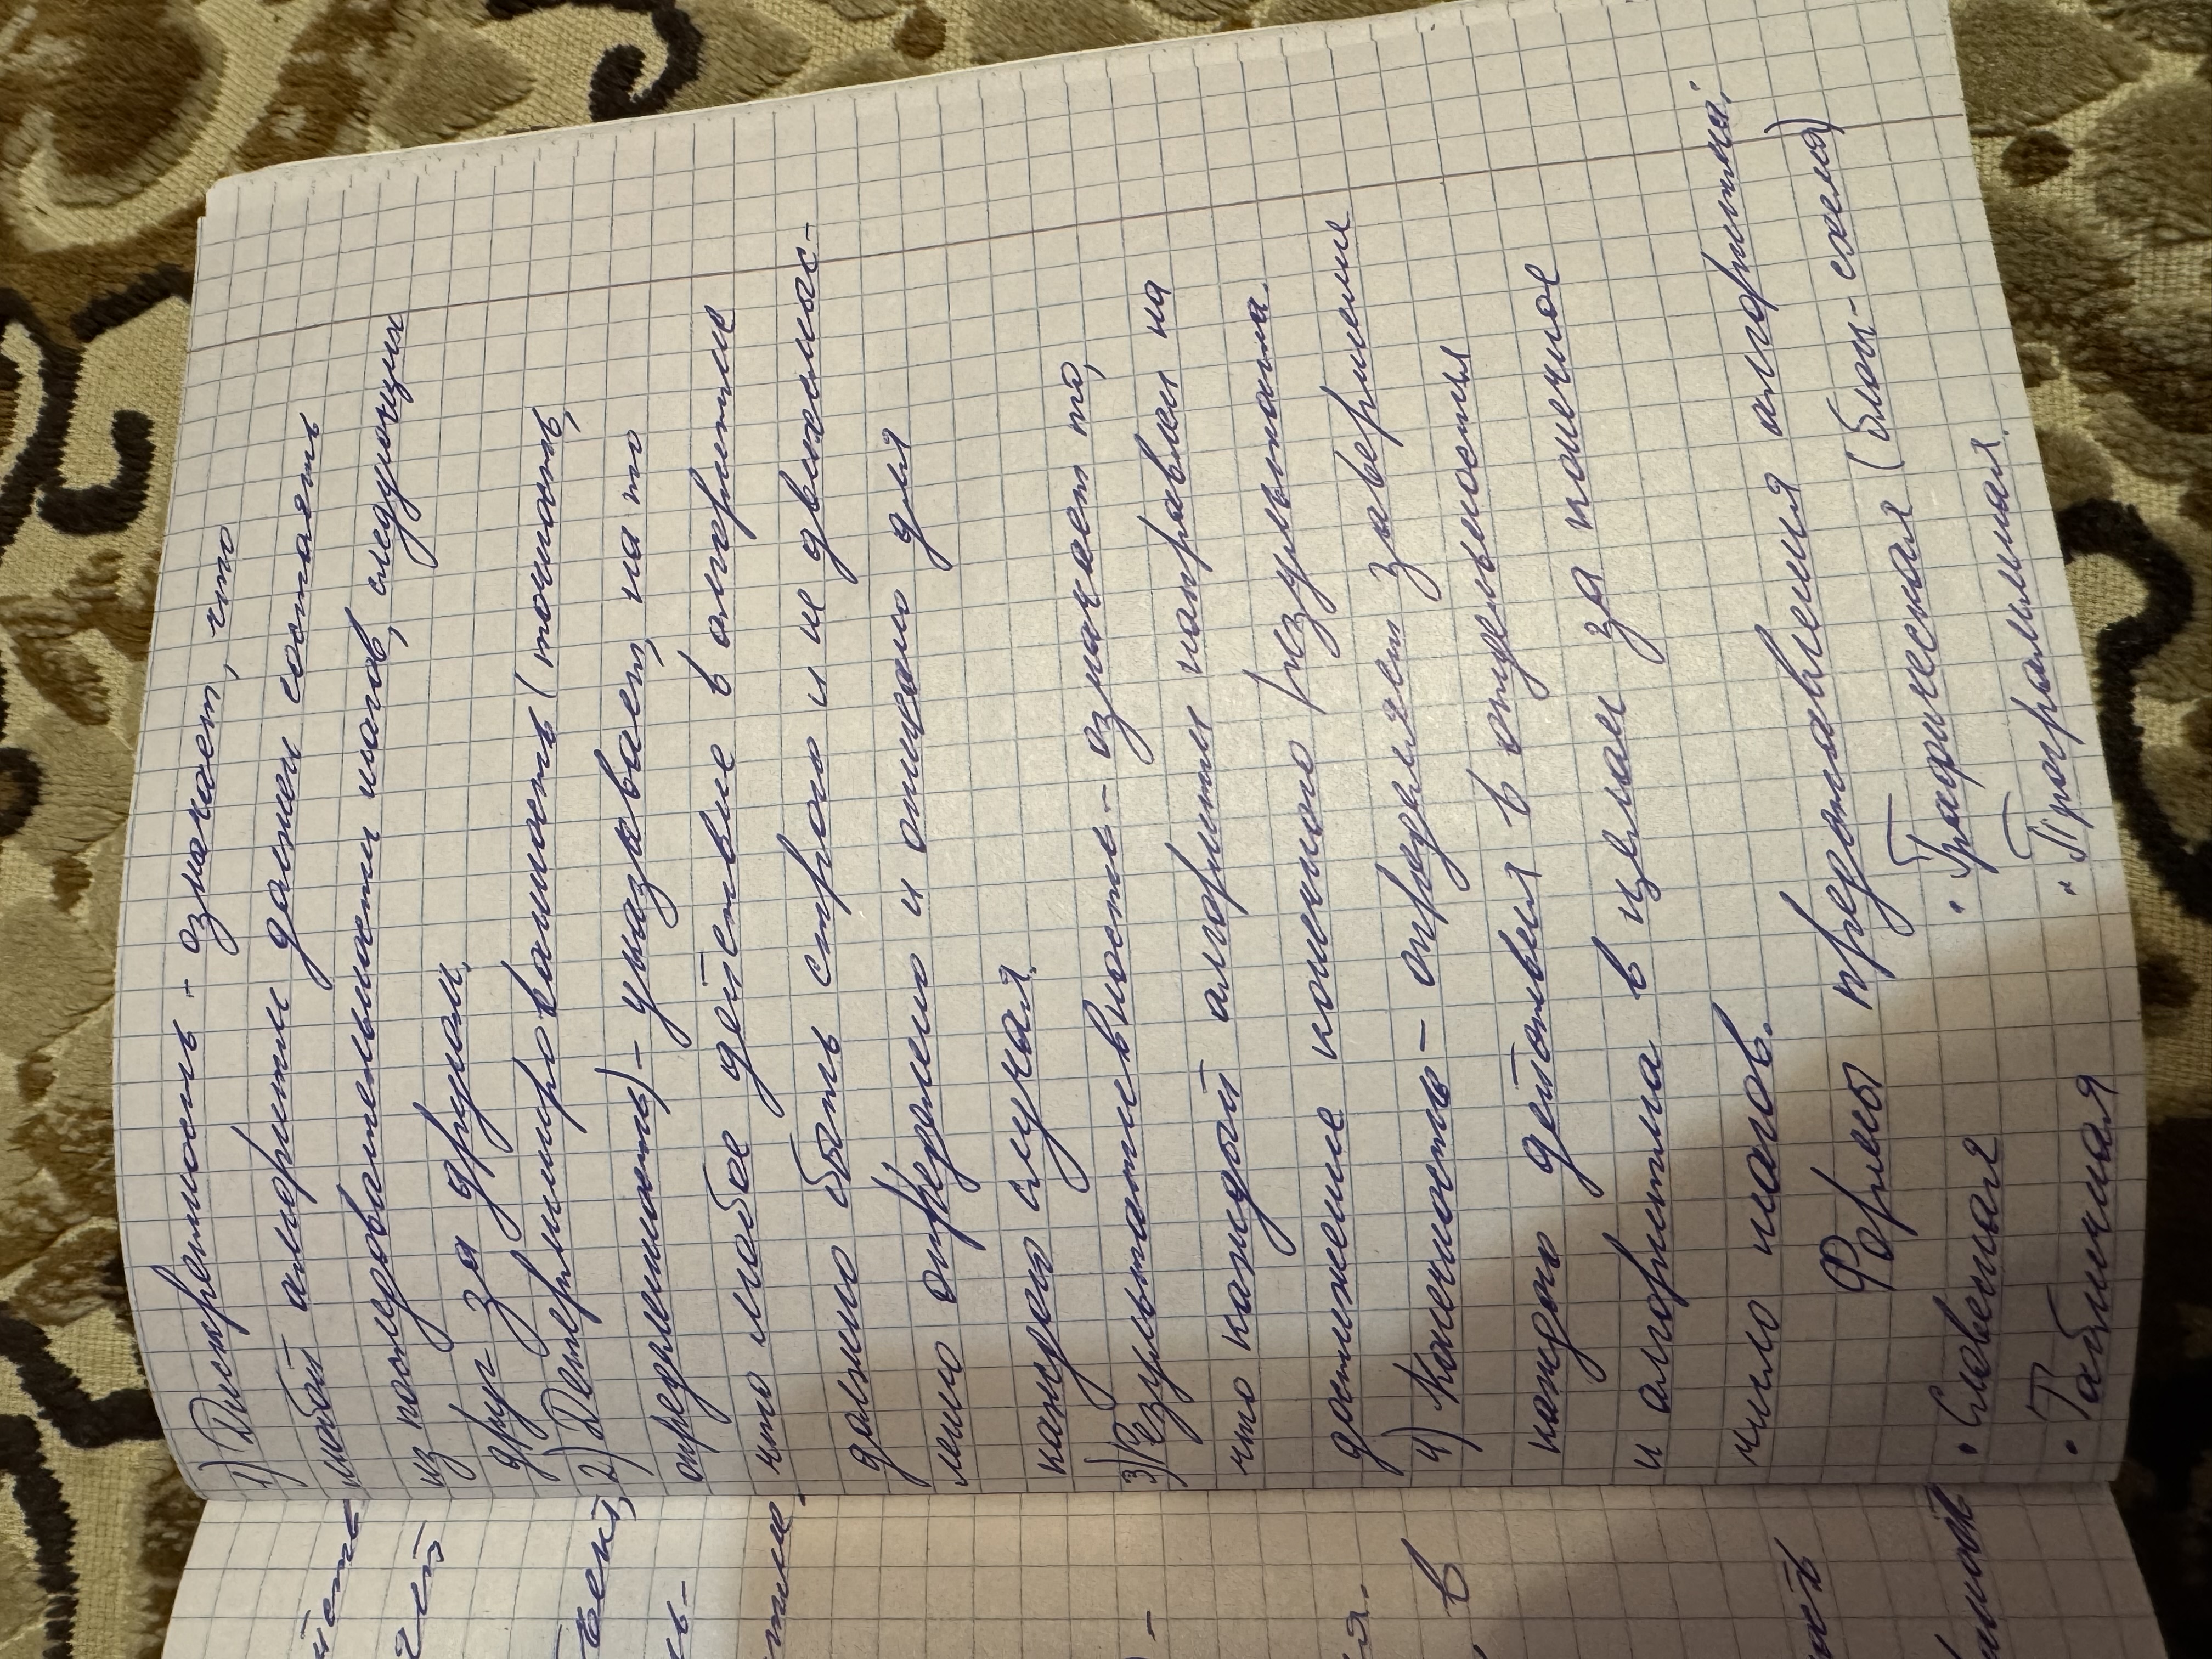 1) Дискретность - означает, что
любой алгоритм должен состоять
из последовательности шагов, следующих
друг за другом.
2) Детермированность (точность,
определенность) - указывает, на то
что любое действие в алгоритме
должно быть строго и не двусмыс-
ленно определено и описано для
каждого случая.
3) Результативность - означает то,
что каждый алгоритм направлен на
достижение конечного результата.
4) Конечность - определяет завершение
каждого действия в отдельности
и алгоритма в целом за конечное
число шагов.
Формы представления алгоритма:
• Словесная • Графическая (блок-схема)
• Табличная • Программная.